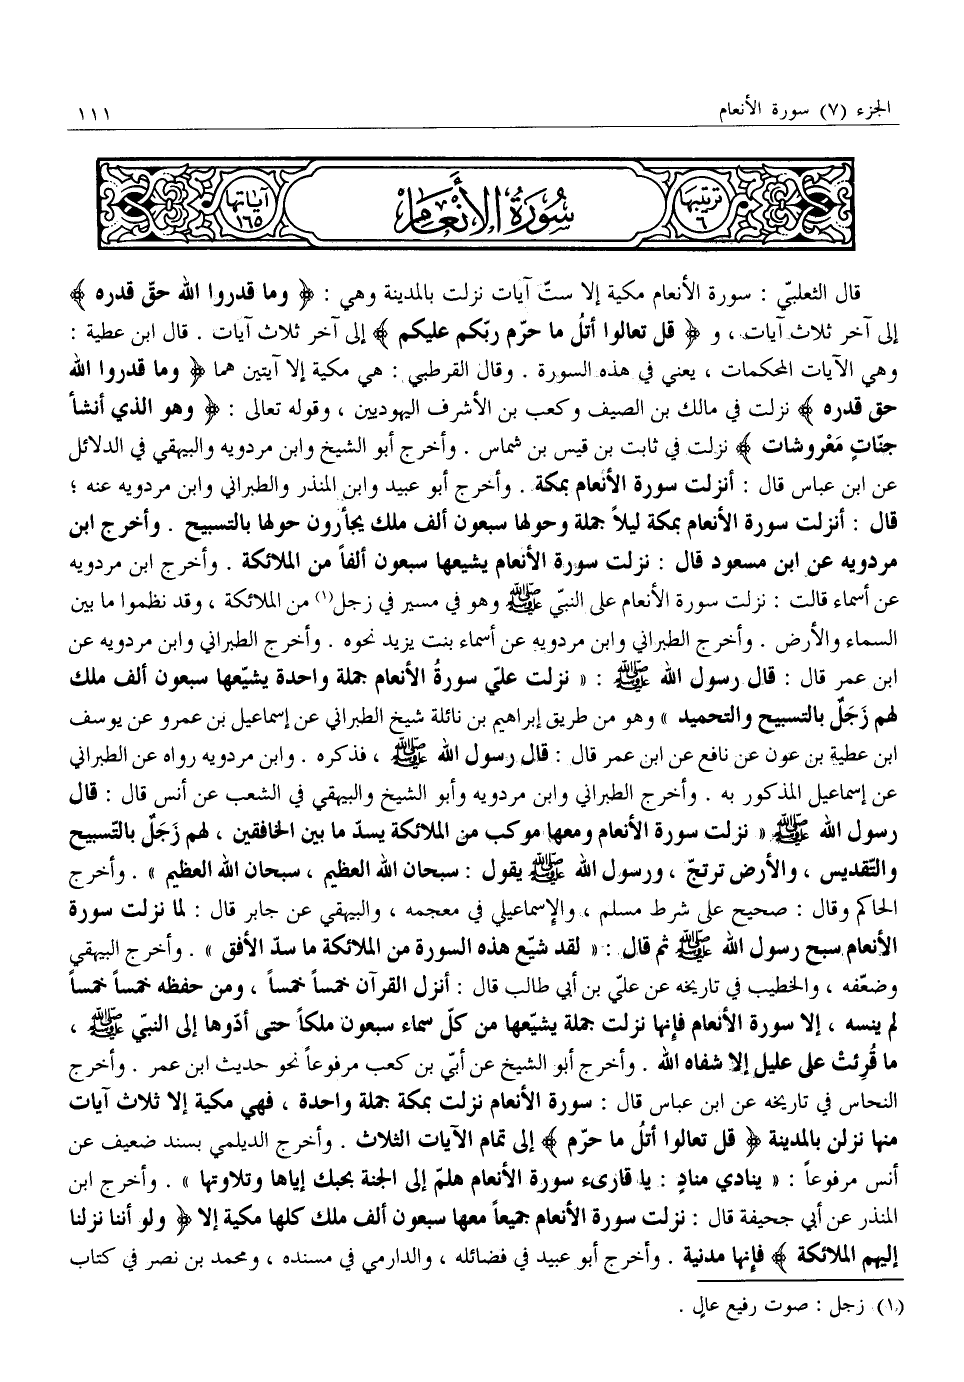 الجزء (٧) سورة الأنعام
١١١
ترتيبها ٦
سُورَةُ الأَنعَام
آياتها ١٦٥
قال الثعلبيّ : سورة الأنعام مكية إلا ستّ آيات نزلت بالمدينة وهي : ﴿ وما قدروا الله حقّ قدره ﴾
إلى آخر ثلاث آيات ، و ﴿ قل تعالوا أتلُ ما حرّم ربّكم عليكم ﴾ إلى آخر ثلاث آيات . قال ابن عطية :
وهي الآيات المحكمات ، يعني في هذه السورة . وقال القرطبي : هي مكية إلا آيتين هما ﴿ وما قدروا الله
حق قدره ﴾ نزلت في مالك بن الصيف وكعب بن الأشرف اليهوديين ، وقوله تعالى : ﴿ وهو الذي أنشأ
جنّاتٍ مَعْروشات ﴾ نزلت في ثابت بن قيس بن شماس . وأخرج أبو الشيخ وابن مردويه والبيهقي في الدلائل
عن ابن عباس قال : أنزلت سورة الأنعام بمكة . وأخرج أبو عبيد وابن المنذر والطبراني وابن مردويه عنه ؛
قال : أنزلت سورة الأنعام بمكة ليلاً جملة وحولها سبعون ألف ملك يجأرون حولها بالتسبيح . وأخرج ابن
مردويه عن ابن مسعود قال : نزلت سورة الأنعام يشيعها سبعون ألفاً من الملائكة . وأخرج ابن مردويه
عن أسماء قالت : نزلت سورة الأنعام على النبيّ ﷺ وهو في مسير في زجل(١) من الملائكة ، وقد نظموا ما بين
السماء والأرض . وأخرج الطبراني وابن مردويه عن أسماء بنت يزيد نحوه . وأخرج الطبراني وابن مردويه عن
ابن عمر قال : قال رسول الله ﷺ : « نزلت عليّ سورةُ الأنعام جملة واحدة يشيّعها سبعون ألف ملك
لهم زَجَلٌ بالتسبيح والتحميد » وهو من طريق إبراهيم بن نائلة شيخ الطبراني عن إسماعيل بن عمرو عن يوسف
ابن عطية بن عون عن نافع عن ابن عمر قال : قال رسول الله ﷺ ، فذكره . وابن مردويه رواه عن الطبراني
عن إسماعيل المذكور به . وأخرج الطبراني وابن مردويه وأبو الشيخ والبيهقي في الشعب عن أنس قال : قال
رسول الله ﷺ « نزلت سورة الأنعام ومعها موكب من الملائكة يسدّ ما بين الخافقين ، لهم زَجَلٌ بالتّسبيح
والتّقديس ، والأرض ترتجّ ، ورسول الله ﷺ يقول : سبحان الله العظيم ، سبحان الله العظيم » . وأخرج
الحاكم وقال : صحيح على شرط مسلم ، والإسماعيلي في معجمه ، والبيهقي عن جابر قال : لما نزلت سورة
الأنعام سبح رسول الله ﷺ ثم قال : « لقد شيّع هذه السورة من الملائكة ما سدّ الأفق » . وأخرج البيهقي
وضعّفه ، والخطيب في تاريخه عن عليّ بن أبي طالب قال : أنزل القرآن خمساً خمساً ، ومن حفظه خمساً خمساً
لم ينسه ، إلا سورة الأنعام فإنها نزلت جملة يشيّعها من كلّ سماء سبعون ملكاً حتى أدّوها إلى النبيّ ﷺ ،
ما قُرِئتْ على عليل إلا شفاه الله . وأخرج أبو الشيخ عن أبيّ بن كعب مرفوعاً نحو حديث ابن عمر . وأخرج
النحاس في تاريخه عن ابن عباس قال : سورة الأنعام نزلت بمكة جملة واحدة ، فهي مكية إلا ثلاث آيات
منها نزلن بالمدينة ﴿ قل تعالوا أتلُ ما حرّم ﴾ إلى تمام الآيات الثلاث . وأخرج الديلمي بسند ضعيف عن
أنس مرفوعاً : « ينادي منادٍ : يا قارىء سورة الأنعام هلمّ إلى الجنة بحبك إياها وتلاوتها » . وأخرج ابن
المنذر عن أبي جحيفة قال : نزلت سورة الأنعام جميعاً معها سبعون ألف ملك كلها مكية إلا ﴿ ولو أننا نزلنا
إليهم الملائكة ﴾ فإنها مدنية . وأخرج أبو عبيد في فضائله ، والدارمي في مسنده ، ومحمد بن نصر في كتاب
(١) زجل : صوت رفيع عالٍ .